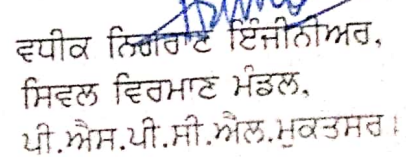 ਵਧੀਕ ਨਿਗਰਾਣ ਇੰਜੀਨੀਅਰ,
ਸਿਵਲ ਵਿਰਮਾਣ ਮੰਡਲ,
ਪੀ.ਐਸ.ਪੀ.ਸੀ.ਐਲ.ਮੁਕਤਸਰ।